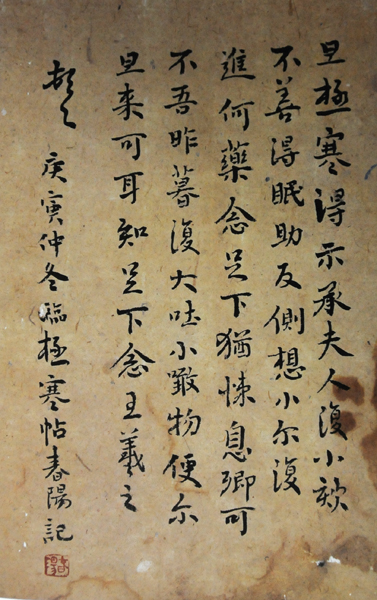 旦極寒得示承夫人復小欬
不善得眠助反側想小尔復
進何藥念足下猶悚息卿可
不吾昨暮復大吐小噉物便尔
旦来可耳知足下念王羲之
頓首 庚寅仲冬臨極寒帖春陽記